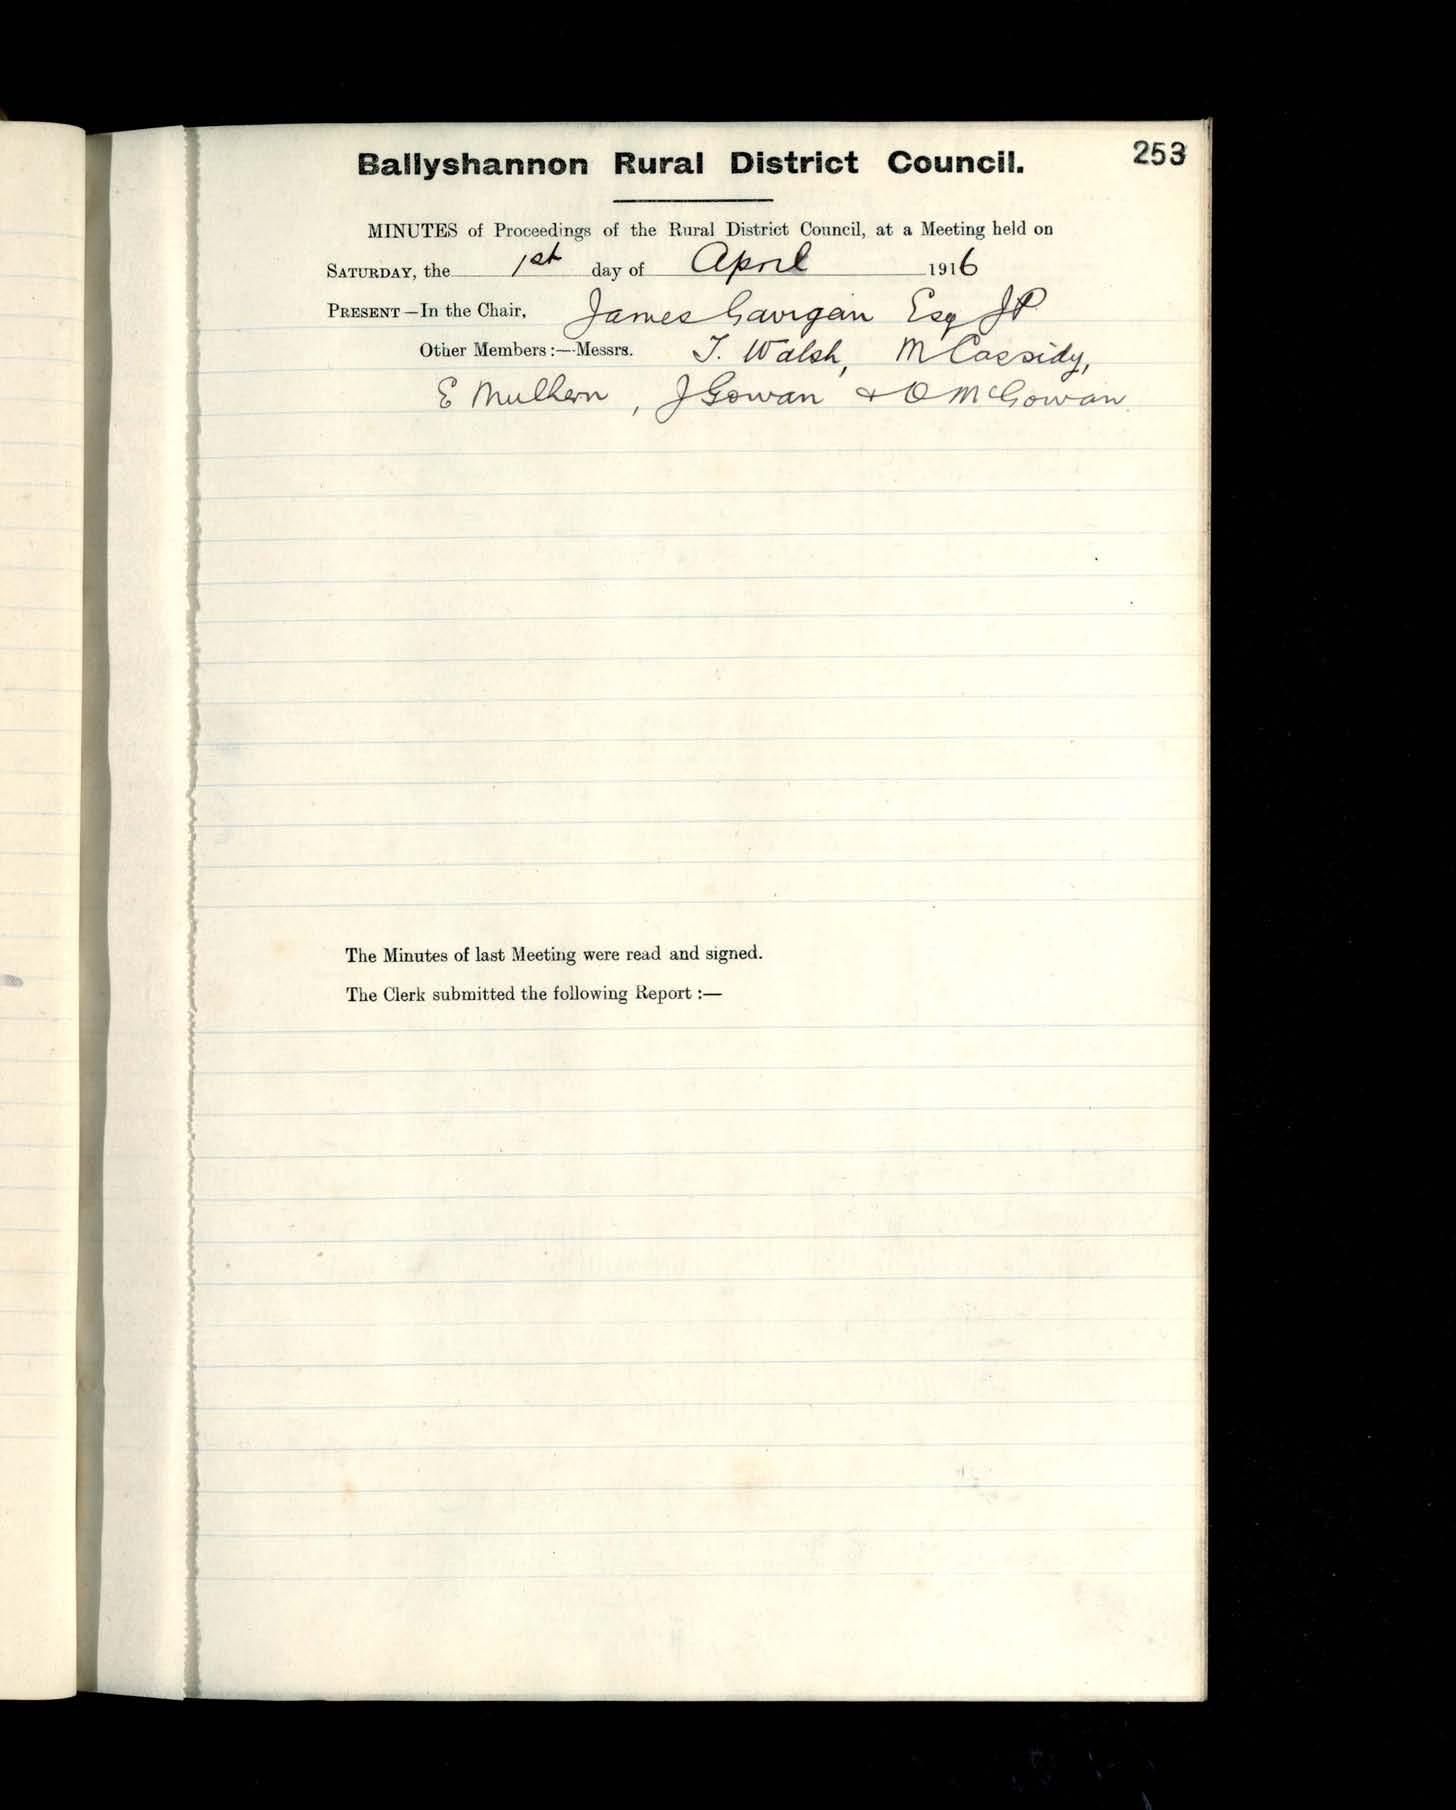 253
Ballyshannon Rural District Council.
MINUTES of Proceedings of the Rural District Council, at a Meeting held on
SATURDAY, the 1st day of April 1916
PRESENT—In the Chair, James Gavigan Esq JP
Other Members:—Messrs. T. Walsh, M Cassidy,
E Mulhern, J Gowan & O McGowan
The Minutes of last Meeting were read and signed.
The Clerk submitted the following Report :—